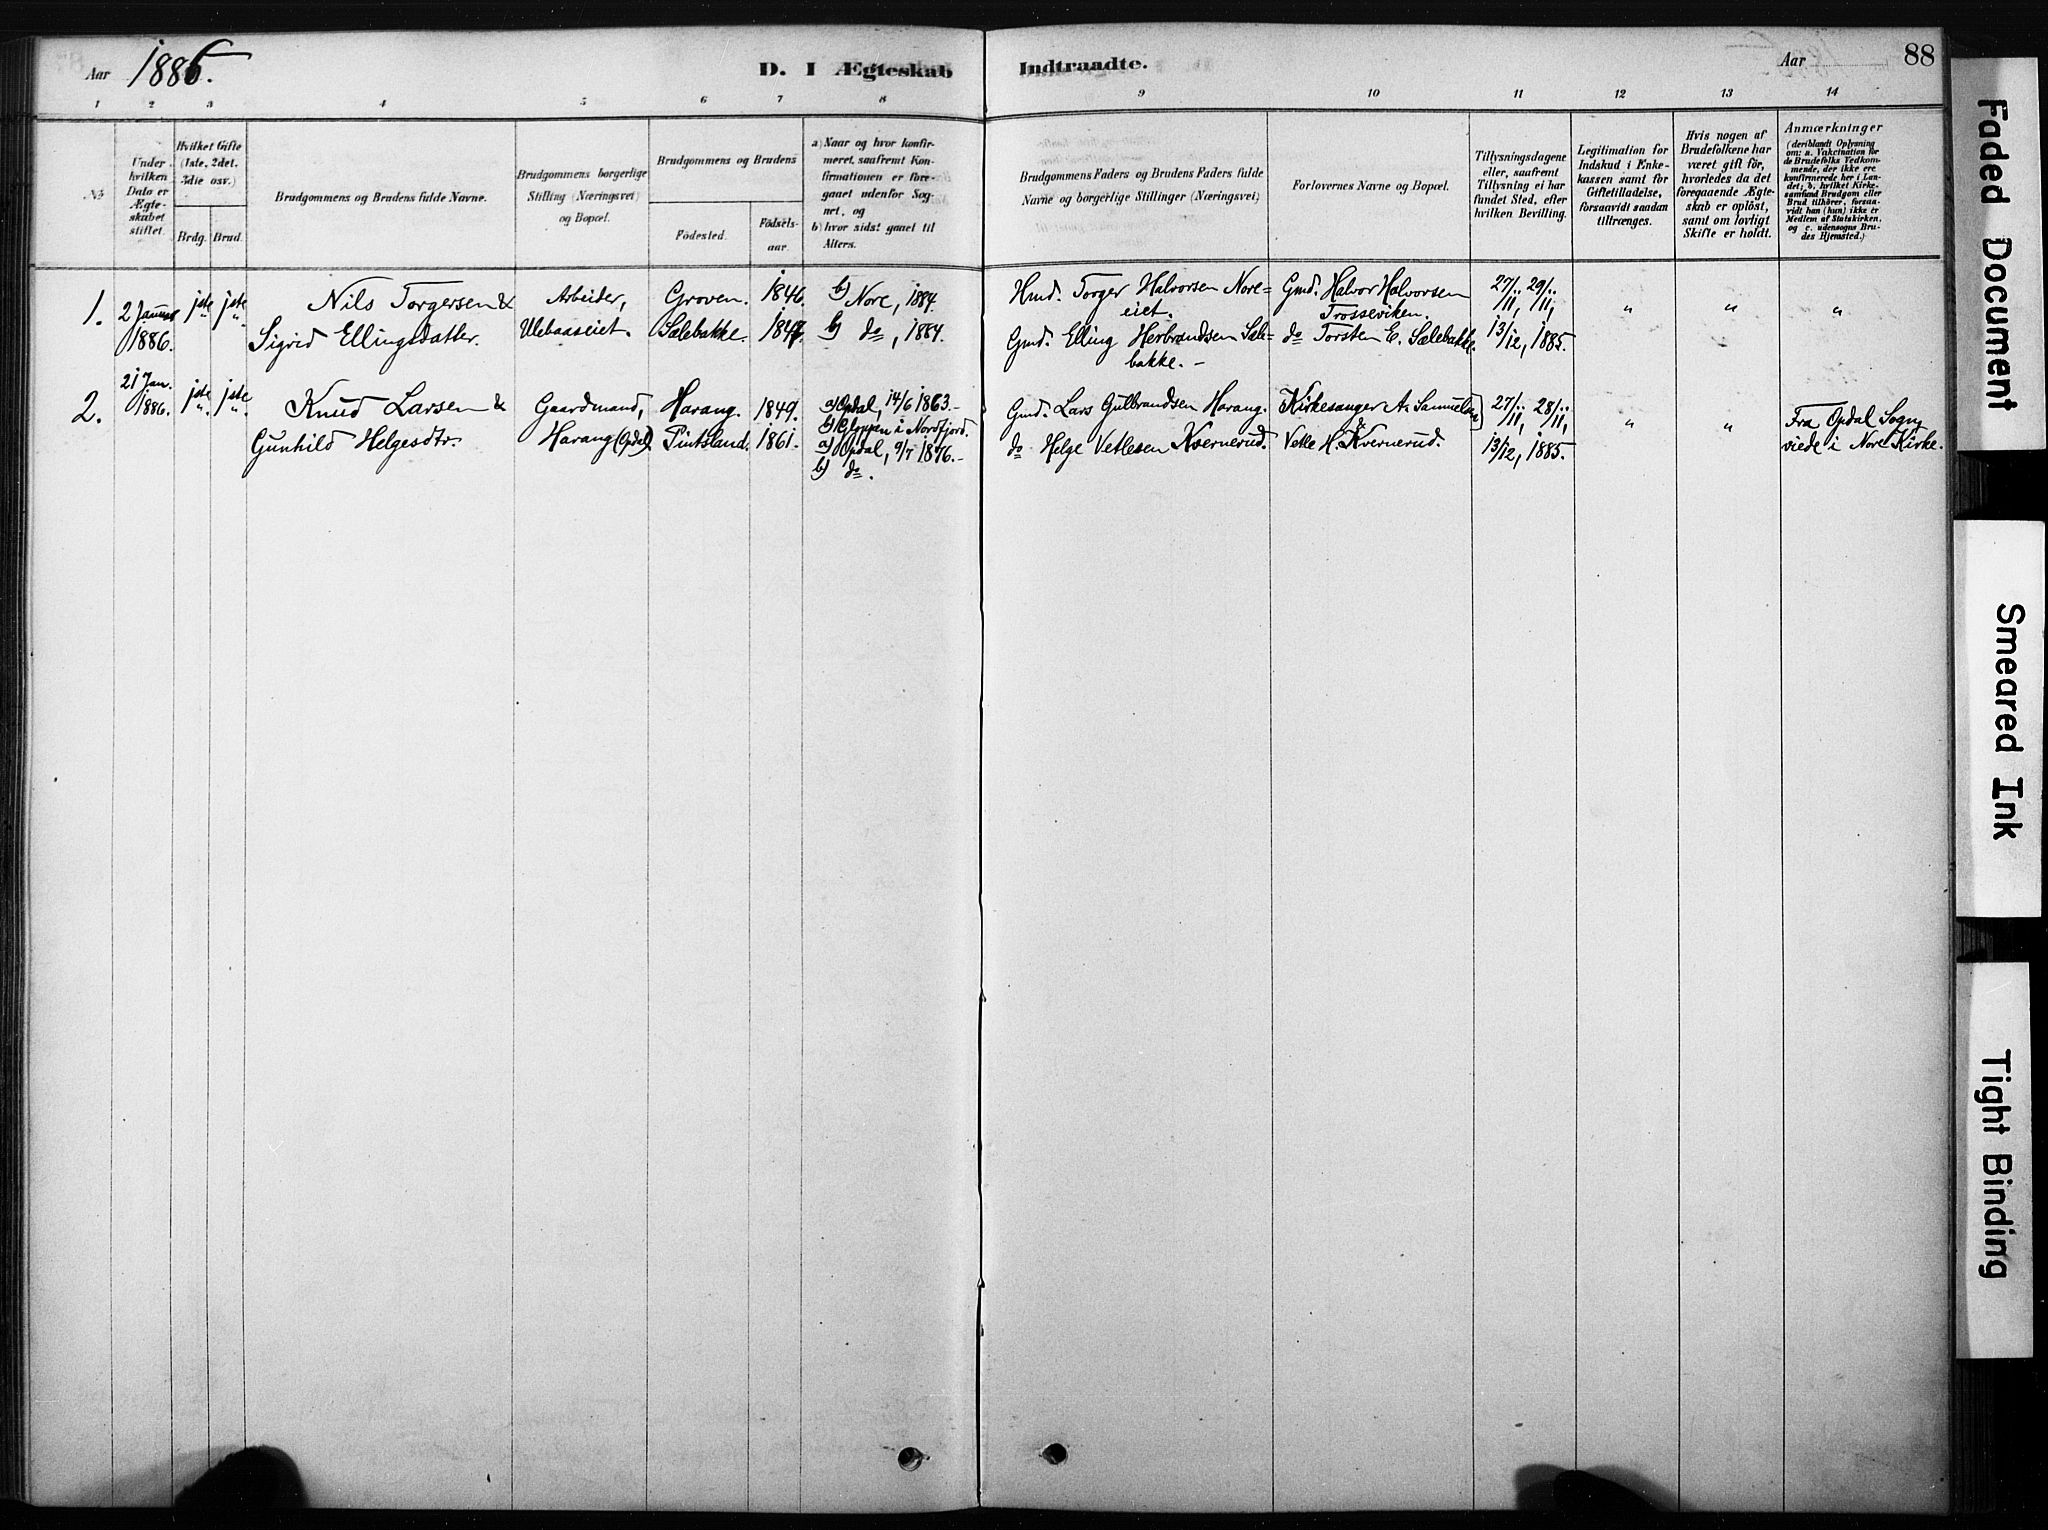 Aar 1886.
D. I Ægteskab Indtraadte.
Aar 88
1 2 3 4 5 6 7 8 9 10 11 12 13 14
No
Under hvilken Dato er Ægteskabet stiftet.
Hvilket Gifte (1ste, 2det, 3die osv.)
Brdg. Brud.
Brudgommens og Brudens fulde Navne.
Brudgommens borgerlige Stilling (Næringsvei) og Bopæl.
Brudgommens og Brudens
Födested. Födselsaar.
a) Naar og hvor konfirmeret, saafremt Konfirmationen er foregaaet udenfor Sognet, og
b) hvor sidst gaaet til Alters.
Brudgommens Faders og Brudens Faders fulde Navne og borgerlige Stillinger (Næringsvei)
Forlovernes Navne og Bopæl.
Tillysningsdagene eller, saafremt Tillysning ei har fundet Sted, efter hvilken Bevilling.
Legitimation for Indskud i Enkekassen samt for Giftetilladelse, forsaavidt saadan tiltrænges.
Hvis nogen af Brudefolkene har været gift för, hvorledes da det foregaaende Ægteskab er oplöst, samt om lovligt Skifte er holdt.
Anmærkninger (deriblandt Oplysning om: a. Vakcination for de Brudefolks Vedkommende, der ikke ere konfirmerede her i Landet; b, hvilket Kirkesamfund Brudgom eller Brud tilhörer, forsaavidt han (hun) ikke er Medlem af Statskirken, og c. udensogns Brudes Hjemsted.)
1. 2 Januar 1886. 1ste 1ste Nils Torgersen & Arbeider, Groven. 1846. b) Nore, 1884. Hmd. Torger Halvorsen Nore= Gmd. Halvor Halvorsen 27/11, 29/11, " " "
eiet. Trosseviken.
Sigrid Ellingsdatter. Ulebaaseiet. Sælebakke. 1847. b) do, 1884. Gmd. Elling Herbrandsen Sæle- do Torsten E. Sælebakke. 13/12, 1885.
bakke. -
2. 21 Jan. 1886. 1ste 1ste Knud Larsen & Gaardmand, Harang. 1849. a) Opdal, 14/6 1863.- Gmd. Lars Gulbrandsen Harang. Kirkesanger A. Samuelsen 27/11, 28/11, " " Fra Opdal Sogn,
b) Gloppen i Nordfjord. &
Gunhild Helgesdtr. Harang (Opdal). Tuntsland. 1861. a) Opdal, 9/7 1876.- do Helge Vetlesen Kvernerud. Vetle H. Kvernerud. 13/12, 1885. viede i Nore Kirke.
b) do.
Faded Document
Smeared Ink
Tight Binding